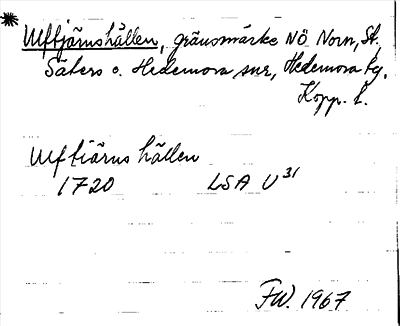 Ulftjärnshällen, gränsmärke NÖ Norn, St.
Säters o. Hedemora snr, Hedemora tg.
Kopp. l.
Ulftiärns hällen
1720 LSA U 31
FW. 1967